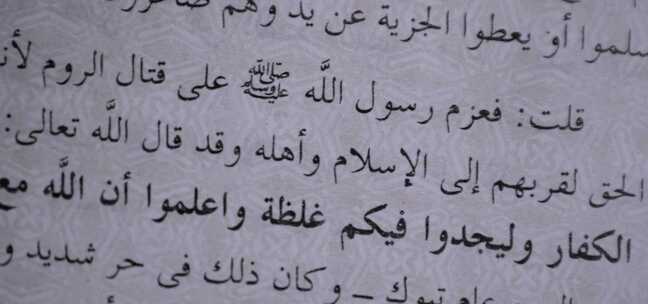 سلموا أو يعطوا الجزية عن يد وهم
قلت: فعزم رسول اللَّه ﷺ على قتال الروم لأنـ
الحق لقربهم إلى الإسلام وأهله وقد قال اللَّه تعالى:
الكفار وليجدوا فيكم غلظة واعلموا أن اللَّه مع
عام تبوك – وكان ذلك فى حر شديد و